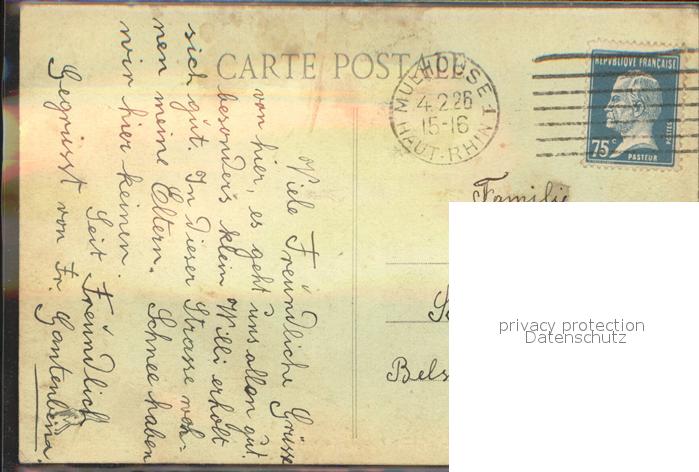 CARTE POSTALE
MULHOUSE 1
4.2.26
15-16
HAUT-RHIN
REPUBLIQUE FRANÇAISE
75c
POSTES
PASTEUR
Viele Freundliche Grüsse
von hier, es geht uns allen gut.
besonders klein Willi erholt
sich gut. In dieser Strasse woh-
nen meine Eltern. Schnee haben
wir hier keinen.
Seit Freundlich
Gegrüsst von Fr. Gantenbein.
Familie
Bels
privacy protection
Datenschutz